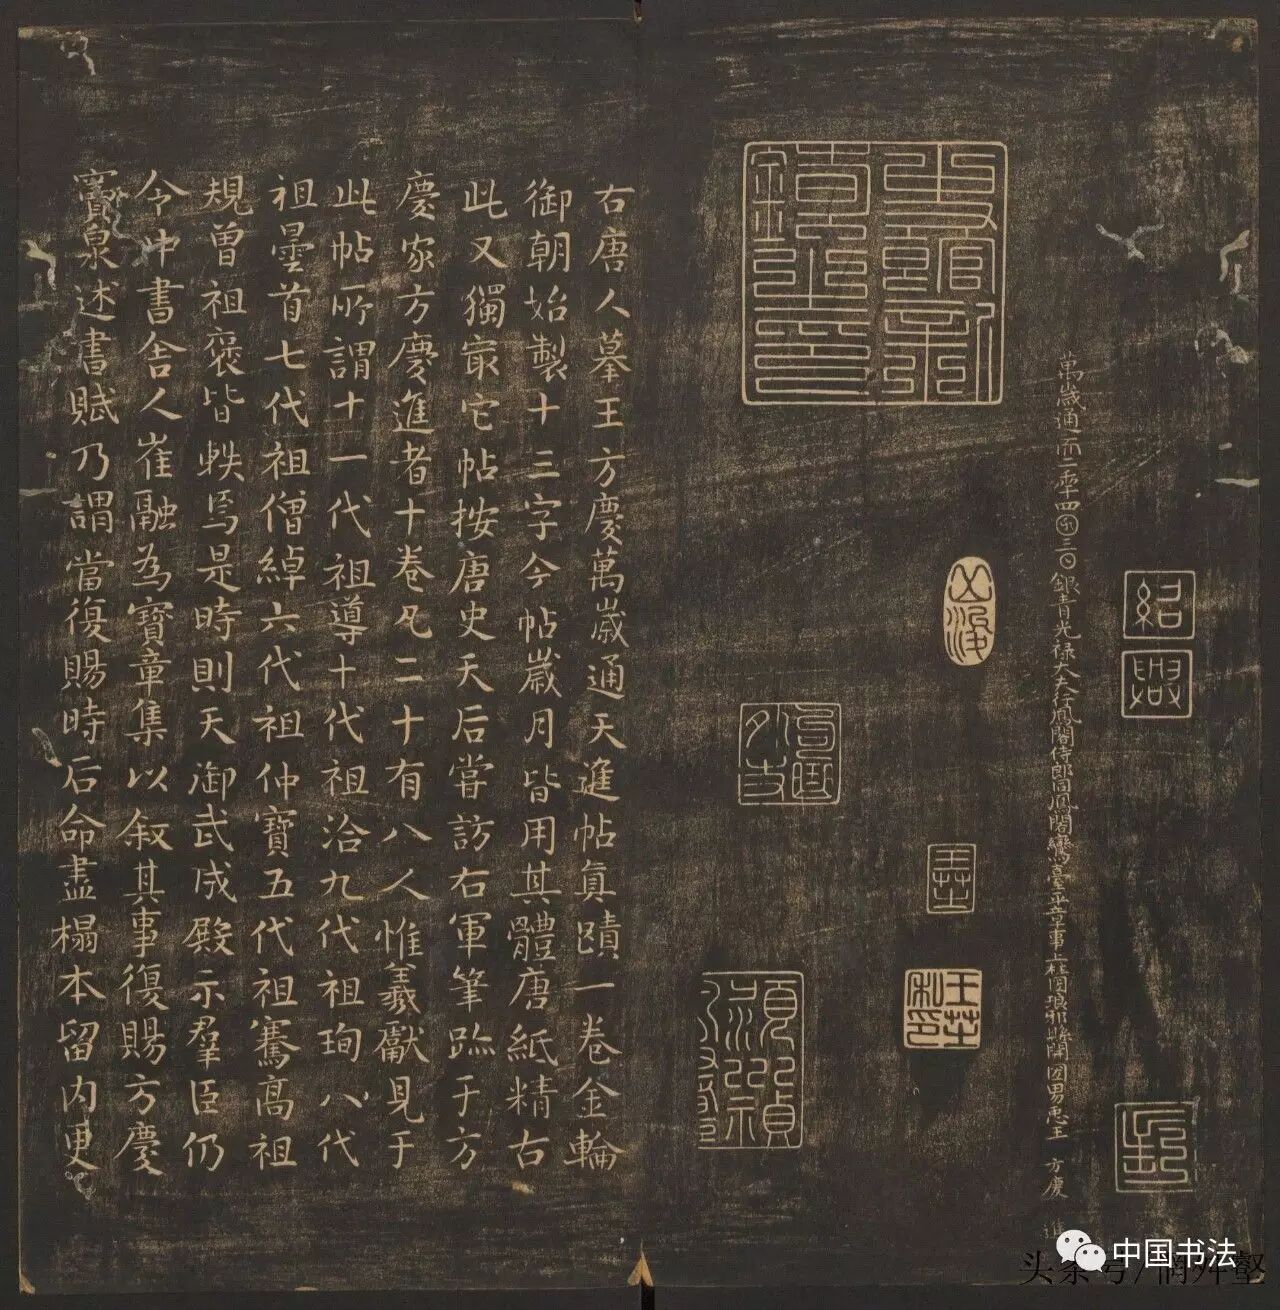 紹興
萬歲通𠀑一秊四𠥱三𡆠銀青光祿大夫行鳳閣侍郎同鳳閣鸞臺平章事上柱圀琅耶縣開圀男𢘑王方慶進
王芝
王芝私印
史館新鑄之印
右唐人摹王方慶萬歲通天進帖真蹟一卷金輪
御朝始製十三字今帖歲月皆用其體唐紙精古
此又獨冣它帖按唐史天后嘗訪右軍筆跡于方
慶家方慶進者十卷凡二十有八人惟羲獻見于
此帖所謂十一代祖導十代祖洽九代祖珣八代
祖曇首七代祖僧綽六代祖仲寶五代祖騫高祖
規曾祖褒皆軼焉是時則天御武成殿示羣臣仍
令中書舍人崔融為寶章集以叙其事復賜方慶
竇泉述書賦乃謂當復賜時后命盡榻本留內更
中国书法